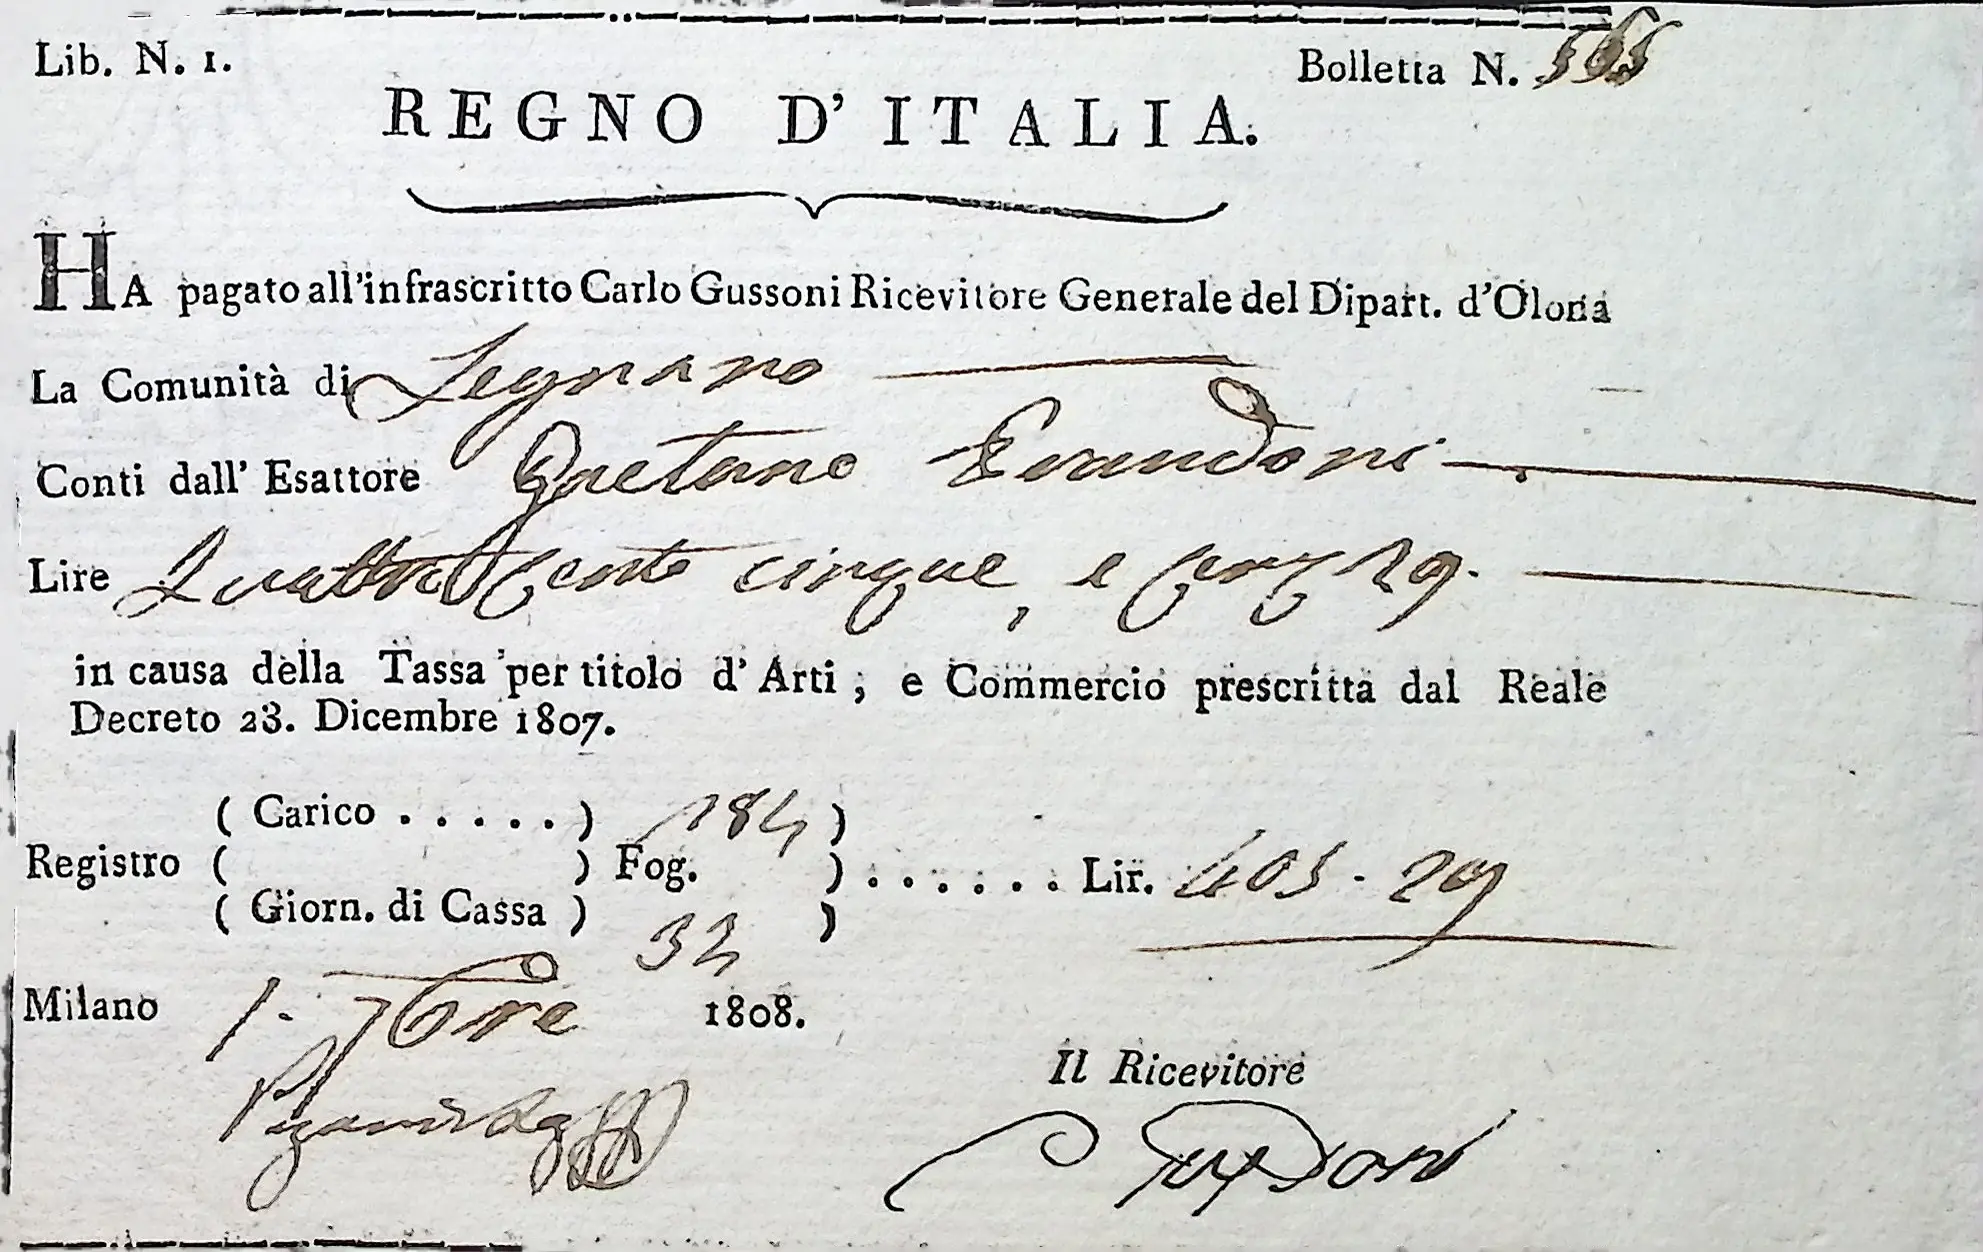 Lib. N. 1.
Bolletta N. 565
REGNO D'ITALIA.
HA pagato all'infrascritto Carlo Gussoni Ricevitore Generale del Dipart. d'Olona
La Comunità di Legnano
Conti dall' Esattore Gaetano
Lire Quattro Cento cinque, e 29.
in causa della Tassa per titolo d' Arti, e Commercio prescritta dal Reale
Decreto 23. Dicembre 1807.
( Carico . . . . . ) 184 )
Registro ( ) Fog. ) . . . . . . Lir. 405 - 29
( Giorn. di Cassa ) 32 )
Milano 1. 7bre 1808.
Il Ricevitore
Gussoni